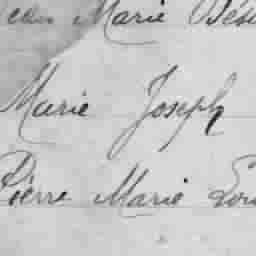 Marie Dési
Marie Joseph
Pierre Marie Lou